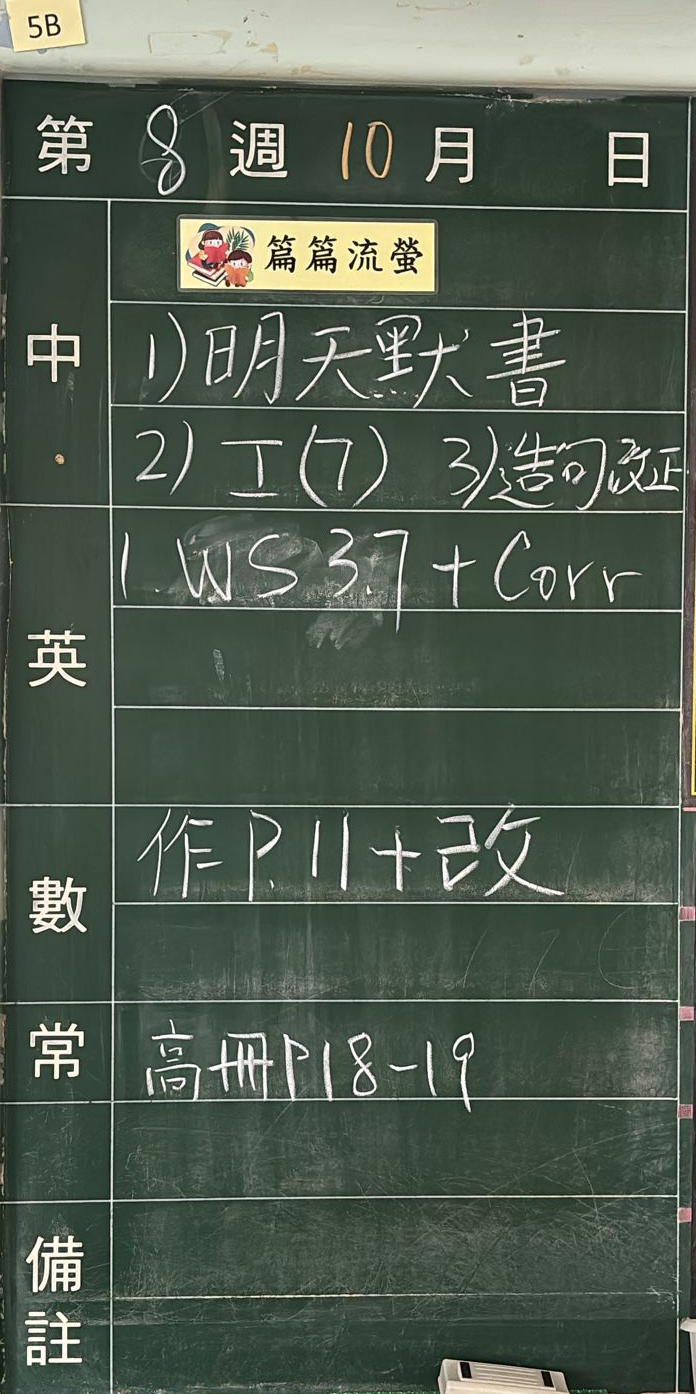 5B
第 8 週 10 月 日
篇篇流螢
中
1) 明天默書
2) 工(7) 3) 造句改正
英
1. WS 3.7 + Corr
數
作 P.11 + 改
常
高冊 P18-19
備註